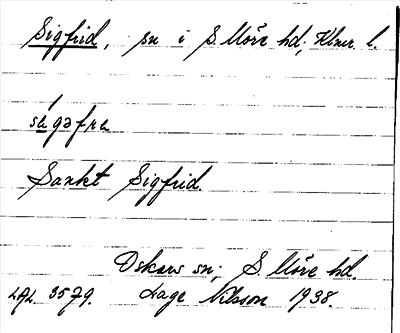 Sigfrid, sn i S. Möre hd, Klmr l.
ságəfre
Sankt Sigfrid.
Oskars sn; S. Möre hd.
LAL. 3579. Lage Nilsson 1938.